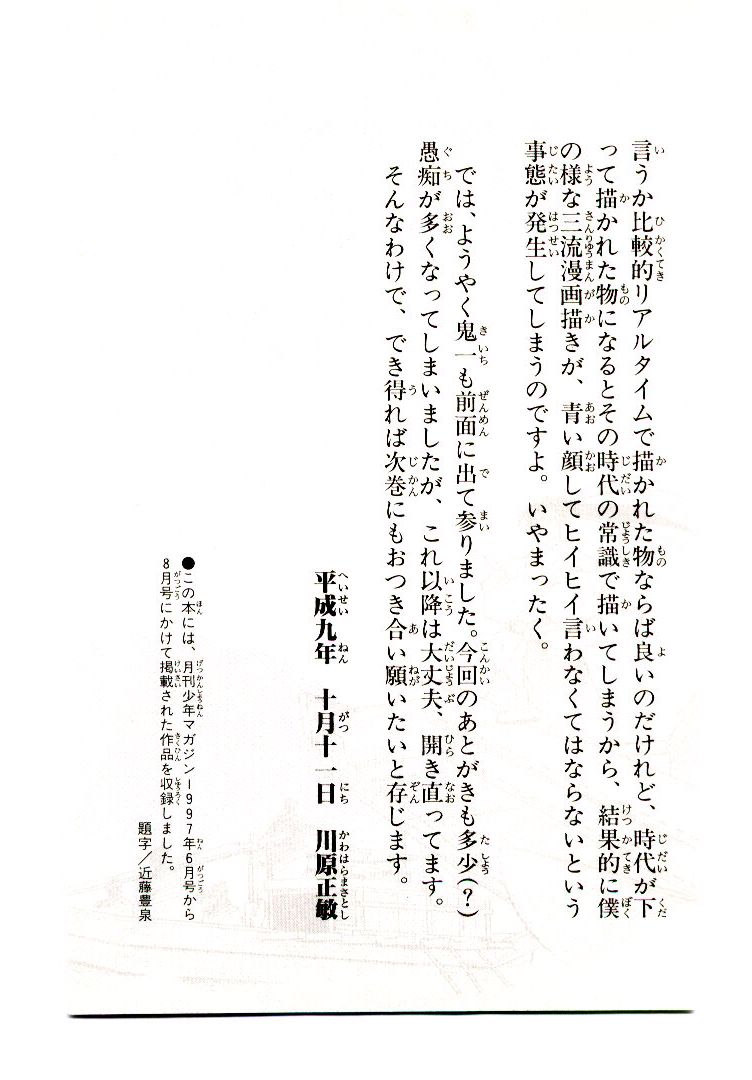 言うか比較的リアルタイムで描かれた物ならば良いのだけれど、時代が下
って描かれた物になるとその時代の常識で描いてしまうから、結果的に僕
の様な三流漫画描きが、青い顔してヒイヒイ言わなくてはならないという
事態が発生してしまうのですよ。いやまったく。
では、ようやく鬼一も前面に出て参りました。今回のあとがきも多少(?)
愚痴が多くなってしまいましたが、これ以降は大丈夫、開き直ってます。
そんなわけで、でき得れば次巻にもおつき合い願いたいと存じます。
平成九年 十月十一日 川原正敏
●この本には、月刊少年マガジン1997年6月号から
8月号にかけて掲載された作品を収録しました。
題字/近藤豊泉